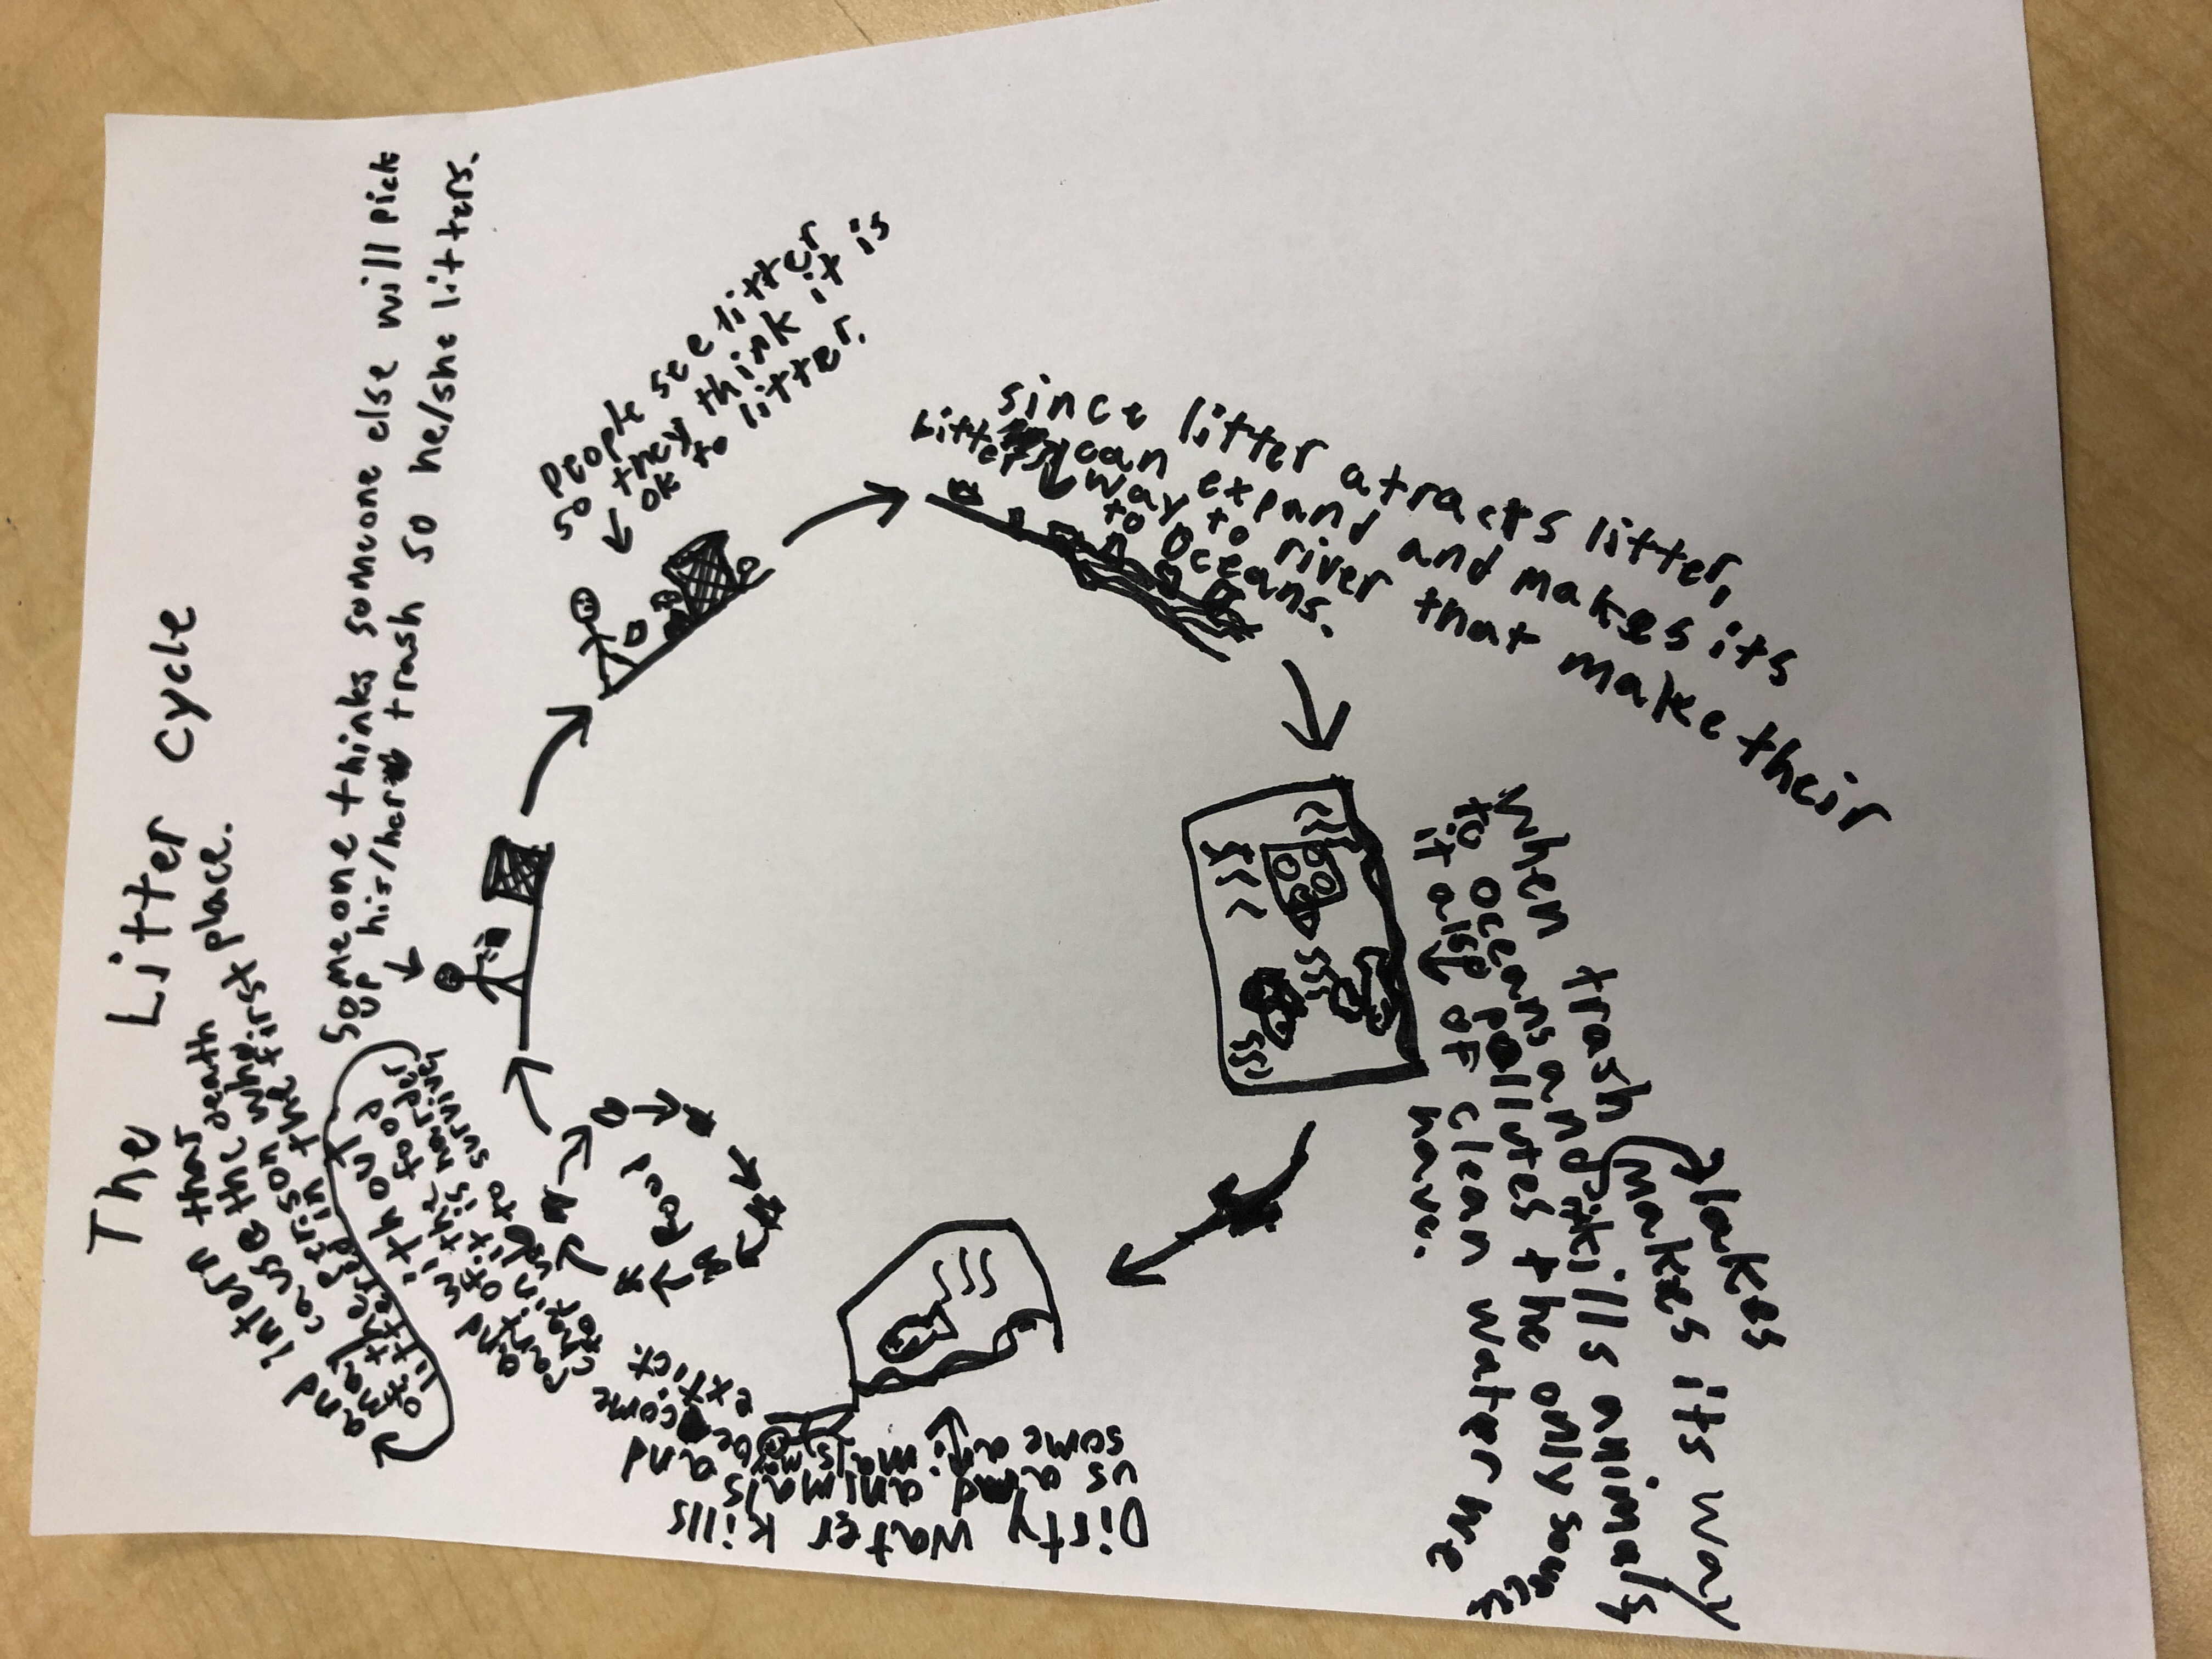 The Litter cycle
Someone thinks someone else will pick
up his/her trash so he/she litters.
people see litter
so they think it is
ok to litter.
since litter atracts litter,
litter can expand and makes its
way to river that make their
to oceans.
when trash makes its way
to oceans and kills animals
it also pollutes the only source
of clean water we
have.
lakes
Dirty water kills
us and animals and
some animals may become
extict.
and without
part of the food
chain it is harder
for to survive,
and intern that
may cause the death
of the person who
littered in the first place.
Food